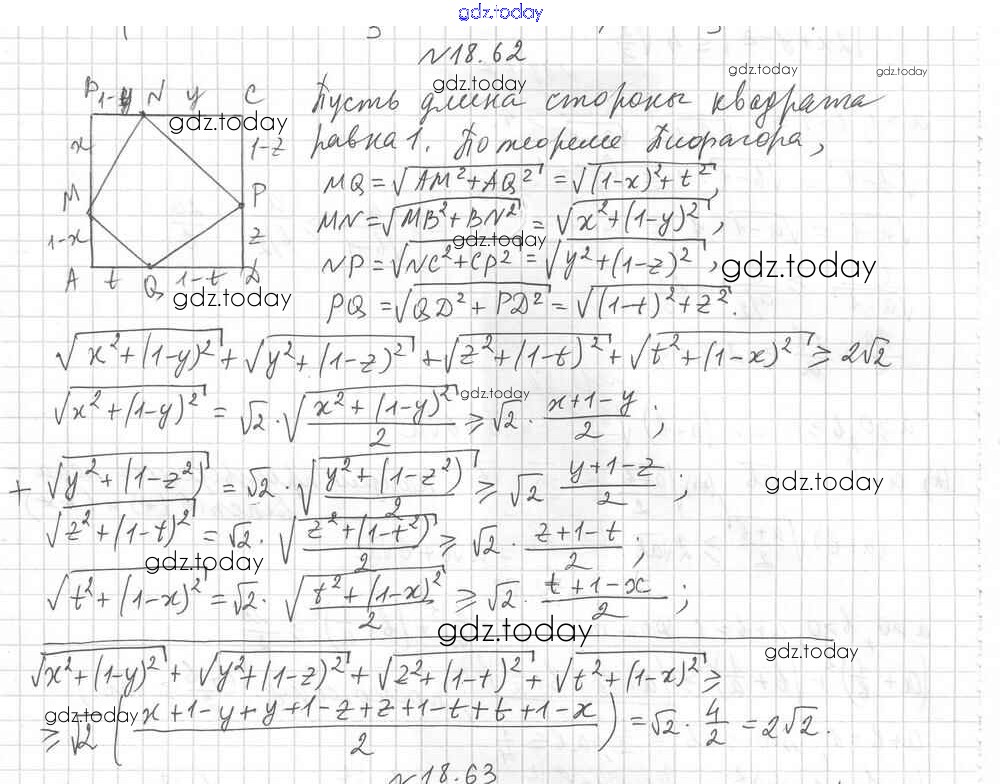 gdz.today
№18.62
gdz.today
gdz.today
gdz.today
B 1-y N y C
x 1-z
M P
1-x z
A t Q 1-t D
gdz.today
gdz.today
Пусть длина стороны квадрата
равна 1. По теореме Пифагора,
MQ = √(AM²+AQ²) = √((1-x)²+t²),
MN = √(MB²+BN²) = √(x²+(1-y)²),
gdz.today
NP = √(NC²+CP²) = √(y²+(1-z)²),
gdz.today
PQ = √(QD²+PD²) = √((1-t)²+z²).
√(x²+(1-y)²) + √(y²+(1-z)²) + √(z²+(1-t)²) + √(t²+(1-x)²) ≥ 2√2
gdz.today
√(x²+(1-y)²) = √2 · √((x²+(1-y)²)/2) ≥ √2 · (x+1-y)/2 ;
+ √(y²+(1-z²)) = √2 · √((y²+(1-z²))/2) ≥ √2 (y+1-z)/2 ;
gdz.today
√(z²+(1-t)²) = √2 · √((z²+(1-t²))/2) ≥ √2 · (z+1-t)/2 ;
gdz.today
√(t²+(1-x)²) = √2 · √((t²+(1-x)²)/2) ≥ √2 · (t+1-x)/2 ;
gdz.today
gdz.today
√(x²+(1-y)²) + √(y²+(1-z)²) + √(z²+(1-t)²) + √(t²+(1-x)²) ≥
gdz.today
≥ √2 ((x+1-y+y+1-z+z+1-t+t+1-x)/2) = √2 · 4/2 = 2√2.
№18.63